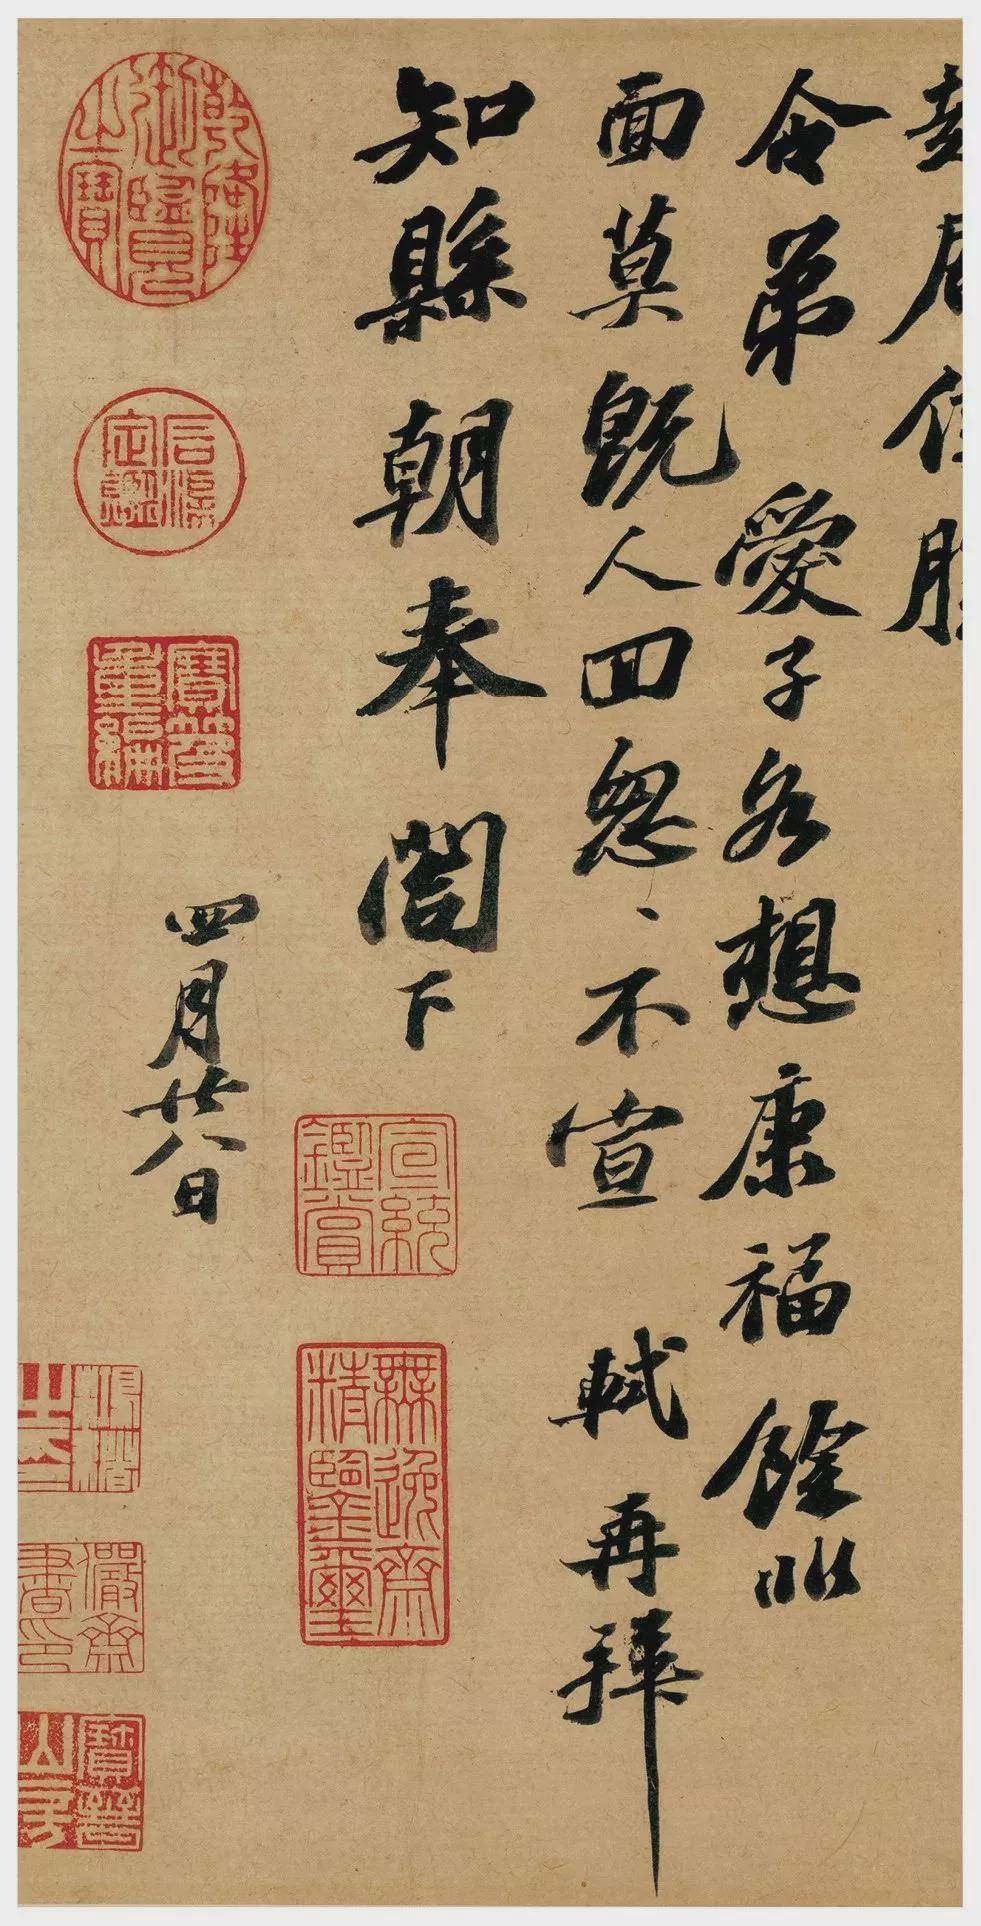 起居佳勝
令弟愛子各想康福餘非
面莫既人回怱〻不宣 軾再拜
知縣朝奉閤下
四月廿八日
乾隆御覽之寶
石渠定鑑
寶笈重編
宣統鑑賞
無逸齋精鑒璽